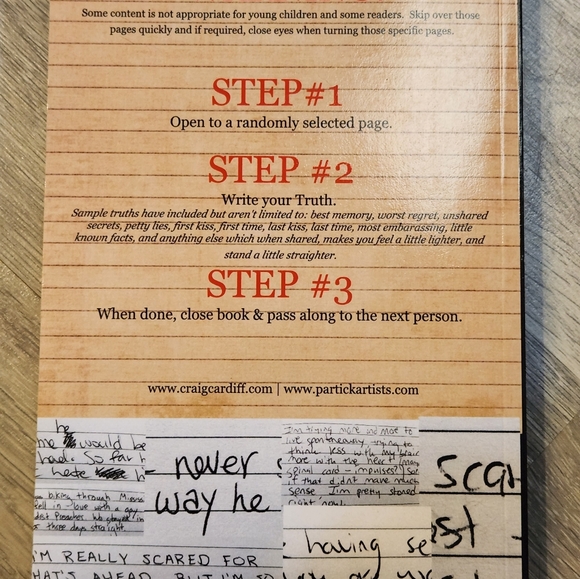 Some content is not appropriate for young children and some readers. Skip over those
pages quickly and if required, close eyes when turning those specific pages.
STEP#1
Open to a randomly selected page.
STEP #2
Write your Truth.
Sample truths have included but aren't limited to: best memory, worst regret, unshared
secrets, petty lies, first kiss, first time, last kiss, last time, most embarassing, little
known facts, and anything else which when shared, makes you feel a little lighter, and
stand a little straighter.
STEP #3
When done, close book & pass along to the next person.
www.craigcardiff.com | www.partickartists.com
he
me would be
had. So far I
hate
biking through
in-love with a gay
three days straight.
I'M REALLY SCARED FOR
WHAT'S AHEAD. BUT I'M SO
never
way he
I'm trying more and more to
live spontaneously, trying to
think less with my brain
more with the heart
spinal cord - impulses! So
if that didn't make much
sense I'm pretty stoned
right now.
having se